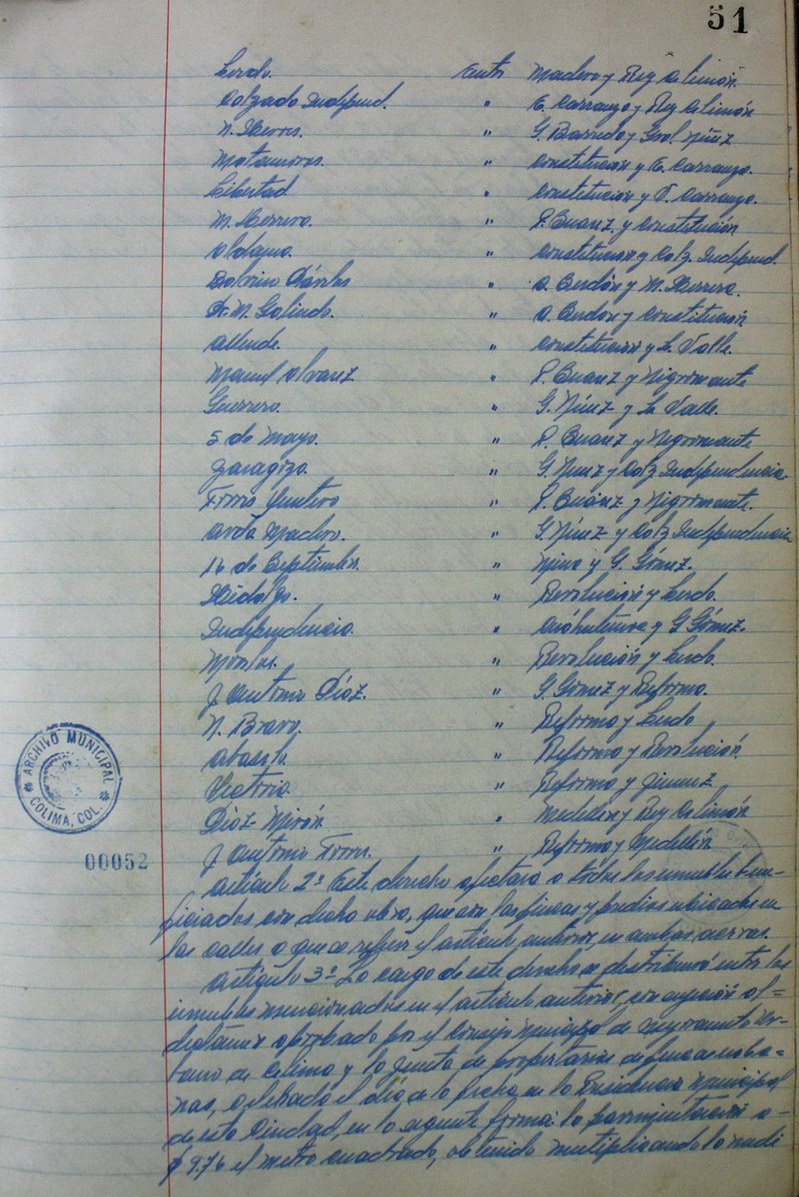 51
Lerdo. entre Madero y Rey Colimán.
Calzada Independ. " E. Carranza y Rey Colimán
N. Heroes. " G. Barreda y Gral. Núñez
Matamoros. " Constitución y E. Carranza.
Libertad " Constitución y V. Carranza.
M. Herrera. " P. Suarez y Constitución
Aldama. " Constitución y Calz. Independ.
Balvino Dávalos " S. Cerdán y M. Herrera.
Dr. M. Galindo. " A. Cerdán y Constitución
Allende. " Constitución y L. Valle.
Manuel Alvarez " P. Suarez y Nigromante
Guerrero. " G. Núñez y L. Valle.
5 de Mayo. " P. Suarez y Nigromante
Zaragoza. " G. Nuñez y Calz Independencia.
Torres Quintero " P. Suárez y Nigromante.
Avda Madero. " G. Núñez y Calz Independencia
16 de Septiembre. " Mina y G. Gómez.
Hidalgo. " Revolución y Lerdo.
Independencia. " Cuáhutemoc y G Gómez.
Morelos. " Revolución y Lerdo.
J. Antonio Díaz. " G. Gómez y Reforma.
N. Bravo. " Reforma y Lerdo
Abasolo. " Reforma y Revolución
Victoria. " Reforma y Jimenez
Díaz Mirón " Medellín y Rey Colimán
J. Antonio Torres. " Reforma y Medellín
ARCHIVO MUNICIPAL
COLIMA, COL.
00052
Artículo 2º Este derecho afectará a todos los inmuebles bene-
ficiados con dicha obra, que son las fincas y predios ubicados en
las calles a que se refiere el artículo anterior, en ambas aceras.
Artículo 3º La carga de este derecho se distribuirá entre los
inmuebles mencionados en el artículo anterior, con sujeción al
dictamen aprobado por el Consejo Municipal de mejoramiento Ur-
bano de Colima y la Junta de propietarios de fincas urba-
nas, celebrada el día de la fecha, en la Presidencia Municipal
de esta Ciudad, en la siguiente forma: la pavimentación a
$ 9.76 el metro cuadrado, obtenido multiplicando la medi